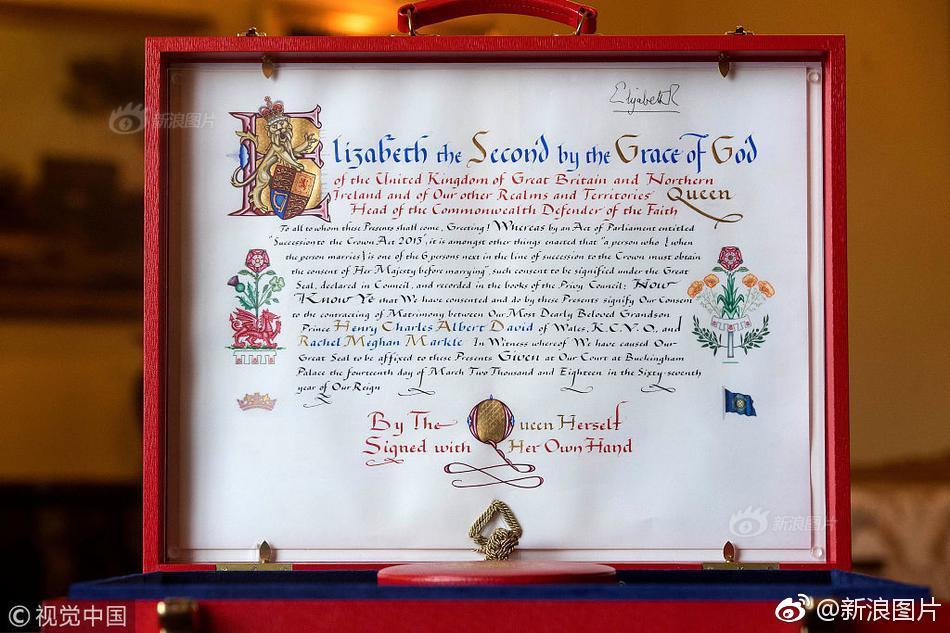 ElizabethR
Elizabeth the Second by the Grace of God
of the United Kingdom of Great Britain and Northern
Ireland and of Our other Realms and Territories Queen
Head of the Commonwealth Defender of the Faith
To all to whom these Presents shall come, Greeting! Whereas by an Act of Parliament entitled
"Succession to the Crown Act 2013", it is amongst other things enacted that "a person who {when
the person marries} is one of the 6 persons next in the line of succession to the Crown must obtain
the consent of Her Majesty before marrying", such consent to be signified under the Great
Seal, declared in Council, and recorded in the books of the Privy Council; Now
Know Ye that We have consented and do by these Presents signify Our Consent
to the contracting of Matrimony between Our Most Dearly Beloved Grandson
Prince Henry Charles Albert David of Wales, K.C.V.O, and
Rachel Meghan Markle In Witness whereof We have caused Our
Great Seal to be affixed to these Presents Given at Our Court at Buckingham
Palace the fourteenth day of March Two Thousand and Eighteen in the Sixty-seventh
year of Our Reign
By The Queen Herself
Signed with Her Own Hand
新浪图片
新浪图片
© 视觉中国
@新浪图片